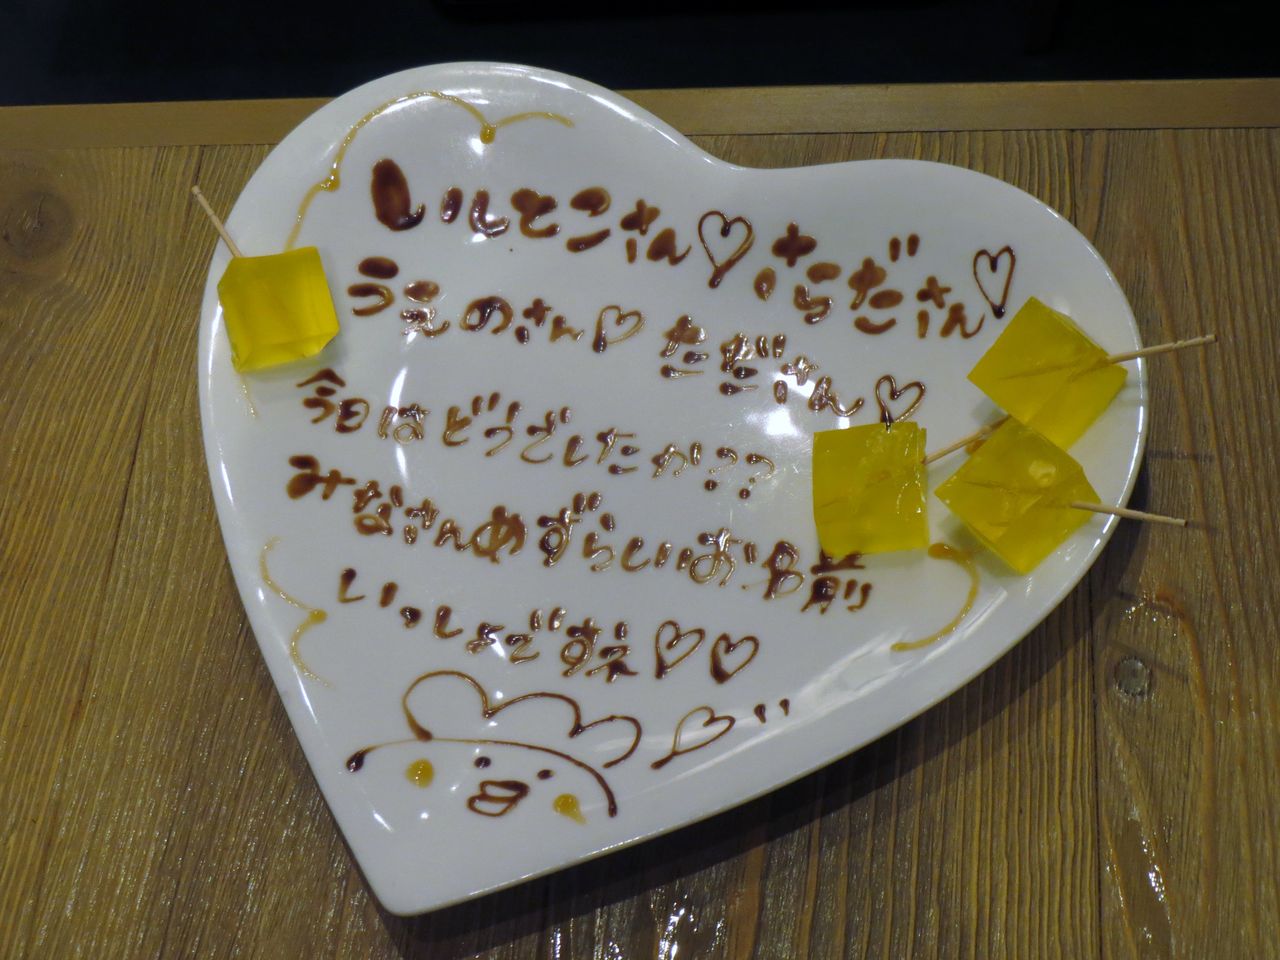 いしとこさん♡ さらださん♡
うえのさん♡ ただださん♡
今日はどうでしたか??
みなさんめずらしいお名前
いっしょですネ♡♡